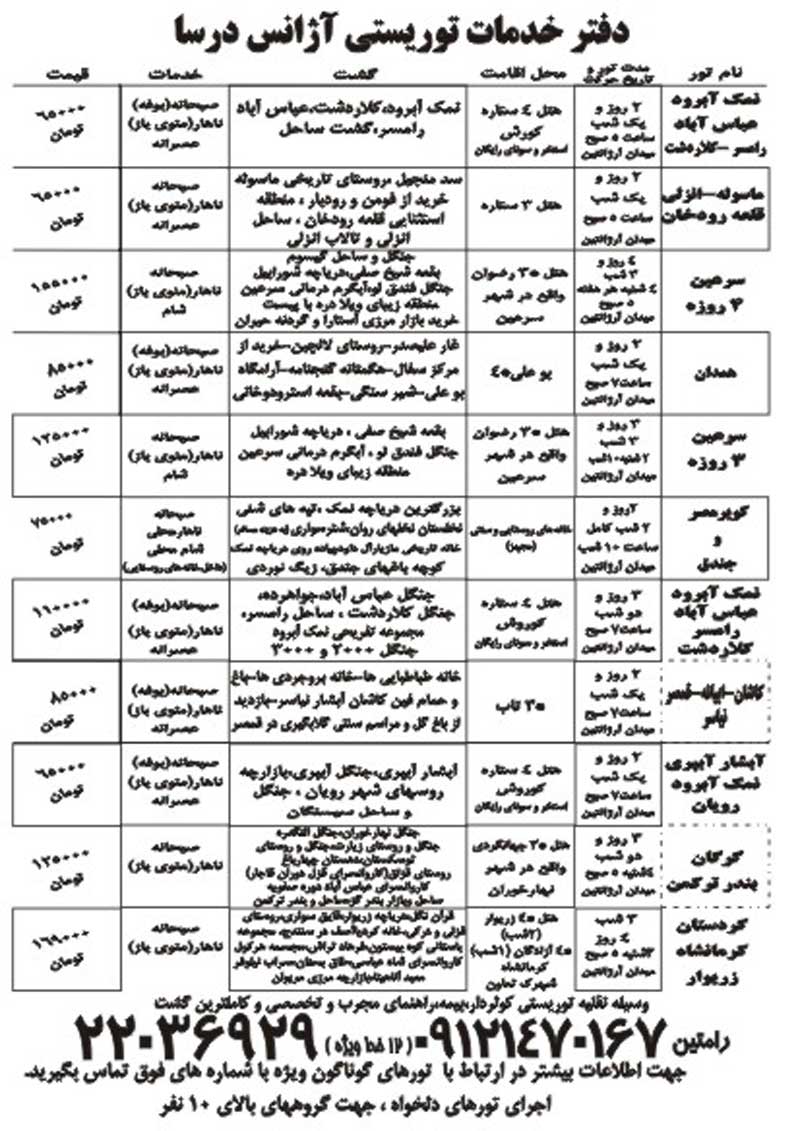 دفتر خدمات توریستی آژانس درسا
نام تور
مدت تور و
تاریخ حرکت
محل اقامت
گشت
خدمات
قیمت
نمک آبرود
عباس آباد
رامسر-کلاردشت
۲ روز و
یک شب
ساعت ۵ صبح
میدان آرژانتین
هتل ٤ ستاره
کورش
استخر و سونای رایگان
نمک آبرود،کلاردشت،عباس آباد
رامسر،گشت ساحل
صبحانه(بوفه)
ناهار(منوی باز)
عصرانه
۶۵۰۰۰
تومان
ماسوله-انزلی
قلعه رودخان
۲ روز و
یک شب
ساعت ۵ صبح
میدان آرژانتین
هتل ۳ ستاره
سد منجیل،روستای تاریخی ماسوله
خرید از فومن و رودبار ، منطقه
استثنایی قلعه رودخان ، ساحل
انزلی و تالاب انزلی
صبحانه
ناهار(منوی باز)
عصرانه
۶۵۰۰۰
تومان
سرعین
۴ روزه
٤ روز و
۳ شب
٤ شنبه هر هفته
۵ صبح
میدان آرژانتین
هتل ۳* رضوان
واقع در شهر
سرعین
جنگل و ساحل گیسوم
بقعه شیخ صفی،دریاچه شورابیل
جنگل فندق لو،آبگرم درمانی سرعین
منطقه زیبای ویلا دره با پیست
خرید بازار مرزی آستارا و گردنه حیران
صبحانه
ناهار(منوی باز)
شام
۱۵۵۰۰۰
تومان
همدان
۲ روز و
یک شب
ساعت ۷ صبح
میدان آرژانتین
بو علی ٤*
غار علیصدر-روستای لالجین-خرید از
مرکز سفال-هگمتانه گنجنامه-آرامگاه
بو علی-شیر سنگی-بقعه استرومردخای
صبحانه(بوفه)
ناهار(منوی باز)
عصرانه
۸۵۰۰۰
تومان
سرعین
۳ روزه
۳ روز و
۳ شب
۲شنبه ۱۰شب
میدان آرژانتین
هتل ۳* رضوان
واقع در شهر
سرعین
بقعه شیخ صفی ، دریاچه شورابیل
جنگل فندق لو ، آبگرم درمانی سرعین
منطقه زیبای ویلا دره
صبحانه
ناهار(منوی باز)
شام
۱۲۵۰۰۰
تومان
کویرمصر
و
جندق
۲روز و
۲ شب کامل
ساعت ۱۰ شب
میدان آرژانتین
خانه های روستایی و سنتی
(مجهز)
بزرگترین دریاچه نمک ، تپه های شنی
نخلستان نخلهای روان،شترسواری
کوچه باغهای جندق، زیگ نوردی
صبحانه
ناهارمحلی
شام محلی
(داخل خانه های روستایی)
۷۵۰۰۰
تومان
نمک آبرود
عباس آباد
رامسر
کلاردشت
۳ روز و
دو شب
ساعت ۷ صبح
میدان آرژانتین
هتل ٤ ستاره
کوروش
استخر و سونای رایگان
جنگل عباس آباد،جواهرده،
جنگل کلاردشت ، ساحل رامسر،
مجموعه تفریحی نمک آبرود
جنگل ۲۰۰۰ و ۳۰۰۰
صبحانه(بوفه)
ناهار(منوی باز)
عصرانه
۱۱۰۰۰۰
تومان
کاشان-ابیانه-قمصر
نیاسر
۲ روز و
یک شب
ساعت ۷ صبح
میدان آرژانتین
۳* تاب
خانه طباطبایی ها-خانه بروجردی ها-باغ
و حمام فین کاشان آبشار نیاسر-بازدید
از باغ گل و مراسم سنتی گلابگیری در قمصر
صبحانه(بوفه)
ناهار(منوی باز)
عصرانه
۸۵۰۰۰
تومان
آبشار آبپری
نمک آبرود
رویان
۲ روز و
یک شب
ساعت ۷ صبح
میدان آرژانتین
هتل ٤ ستاره
کوروش
استخر و سونای رایگان
آبشار آبپری،جنگل آبپری،بازارچه
روسهای شهر رویان ، جنگل
و ساحل سیسنگان
صبحانه(بوفه)
ناهار(منوی باز)
عصرانه
۶۵۰۰۰
تومان
گرگان
بندر ترکمن
۳ روز و
دو شب
٤شنبه ۵ صبح
میدان آرژانتین
هتل ۲* جهانگردی
واقع در شهر
نهارخوران
جنگل نهارخوران،جنگل النگدره
جنگل و روستای زیارت،جنگل و روستای
توسکستان،دشستان چهارباغ
روستای قزلق(کاروانسرای قزل دوران قاجار)
کاروانسرای عباس آباد دوره صفویه
ساحل وبازار بندر گز،ساحل و بندر ترکمن
صبحانه
ناهار(منوی باز)
۱۲۵۰۰۰
تومان
کردستان
کرمانشاه
زریوار
۳ شب
٤ روز
۳شنبه ۵ صبح
میدان آرژانتین
هتل ٤* زریوار
(۲شب)
٤* آزادگان (۱شب)
کرمانشاه
شهرک تعاون
قرآن نگل،دریاچه زریوار،قایق سواری،روستای
باستانی کوه بیستون،فرهاد تراش،مجسمه هرکول
کاروانسرای شاه عباسی،طاق بستان،سراب نیلوفر
معبد آناهیتا،بازارچه مرزی مریوان
صبحانه
ناهار(منوی باز)
۱۶۹۰۰۰
تومان
وسیله نقلیه توریستی کولردار،بیمه،راهنمای مجرب و تخصصی و کاملترین گشت
رامتین ۰۹۱۲۱٤۷۰۱۶۷ (۱۲ خط ویژه) ۲۲۰۳۶۹۲۹
جهت اطلاعات بیشتر در ارتباط با تورهای گوناگون ویژه با شماره های فوق تماس بگیرید.
اجرای تورهای دلخواه ، جهت گروههای بالای ۱۰ نفر